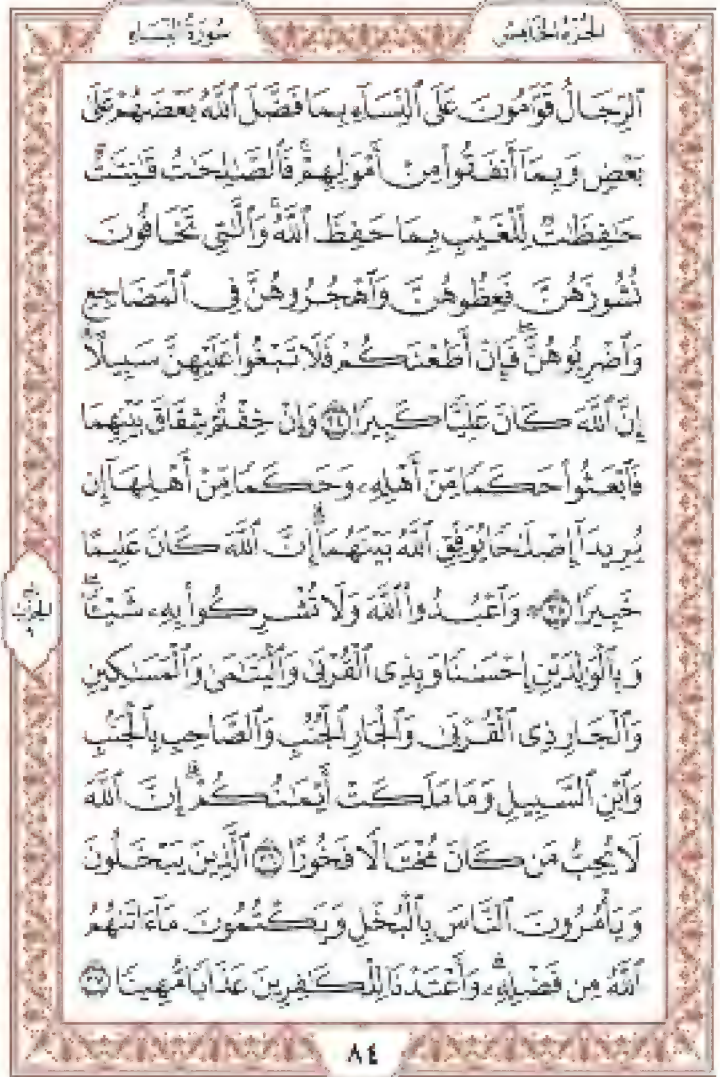 سُورَةُ النِّسَاءِ
الجُزْءُ الخَامِسُ
ٱلرِّجَالُ قَوَّٰمُونَ عَلَى ٱلنِّسَآءِ بِمَا فَضَّلَ ٱللَّهُ بَعْضَهُمْ عَلَىٰ
بَعْضٍ وَبِمَآ أَنفَقُوا۟ مِنْ أَمْوَٰلِهِمْ ۚ فَٱلصَّٰلِحَٰتُ قَٰنِتَٰتٌ
حَٰفِظَٰتٌ لِّلْغَيْبِ بِمَا حَفِظَ ٱللَّهُ ۚ وَٱلَّٰتِى تَخَافُونَ
نُشُوزَهُنَّ فَعِظُوهُنَّ وَٱهْجُرُوهُنَّ فِى ٱلْمَضَاجِعِ
وَٱضْرِبُوهُنَّ ۖ فَإِنْ أَطَعْنَكُمْ فَلَا تَبْغُوا۟ عَلَيْهِنَّ سَبِيلًا ۗ
إِنَّ ٱللَّهَ كَانَ عَلِيًّا كَبِيرًا ٣٤ وَإِنْ خِفْتُمْ شِقَاقَ بَيْنِهِمَا
فَٱبْعَثُوا۟ حَكَمًا مِّنْ أَهْلِهِۦ وَحَكَمًا مِّنْ أَهْلِهَآ إِن
يُرِيدَآ إِصْلَٰحًا يُوَفِّقِ ٱللَّهُ بَيْنَهُمَآ ۗ إِنَّ ٱللَّهَ كَانَ عَلِيمًا
خَبِيرًا ٣٥ ۞ وَٱعْبُدُوا۟ ٱللَّهَ وَلَا تُشْرِكُوا۟ بِهِۦ شَيْـًٔا ۖ
وَبِٱلْوَٰلِدَيْنِ إِحْسَٰنًا وَبِذِى ٱلْقُرْبَىٰ وَٱلْيَتَٰمَىٰ وَٱلْمَسَٰكِينِ
وَٱلْجَارِ ذِى ٱلْقُرْبَىٰ وَٱلْجَارِ ٱلْجُنُبِ وَٱلصَّاحِبِ بِٱلْجَنۢبِ
وَٱبْنِ ٱلسَّبِيلِ وَمَا مَلَكَتْ أَيْمَٰنُكُمْ ۗ إِنَّ ٱللَّهَ
لَا يُحِبُّ مَن كَانَ مُخْتَالًا فَخُورًا ٣٦ ٱلَّذِينَ يَبْخَلُونَ
وَيَأْمُرُونَ ٱلنَّاسَ بِٱلْبُخْلِ وَيَكْتُمُونَ مَآ ءَاتَىٰهُمُ
ٱللَّهُ مِن فَضْلِهِۦ ۗ وَأَعْتَدْنَا لِلْكَٰفِرِينَ عَذَابًا مُّهِينًا ٣٧
الحِزْبُ
٩
٨٤